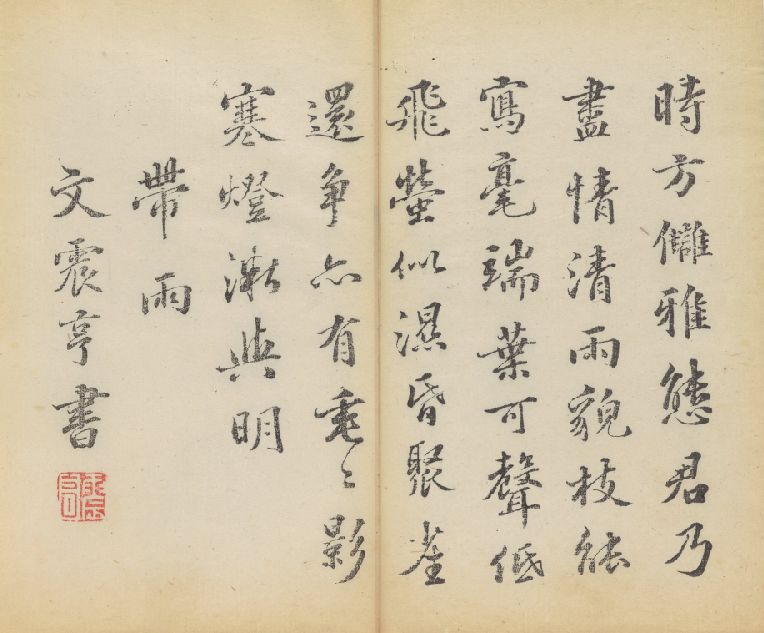 時方雅態君乃
盡情清雨貌枝能
寫毫端葉可聲低
飛螢似濕昏聚雀
還争亦有影
寒燈漸與明
帶雨
文震亨書